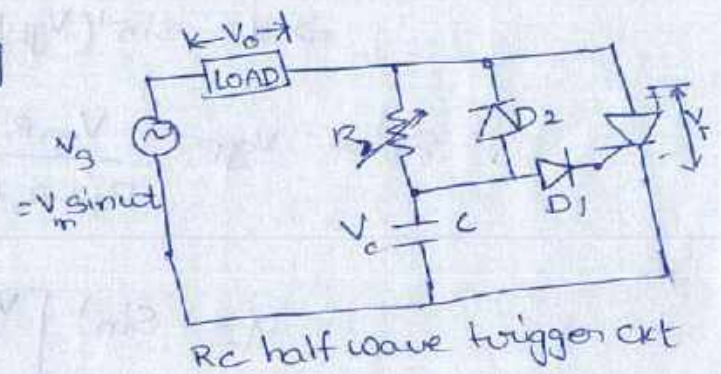 V₀
LOAD
Vs
= Vm sinωt
R₂
D2
D1
Vc
C
VT
RC half wave trigger ckt